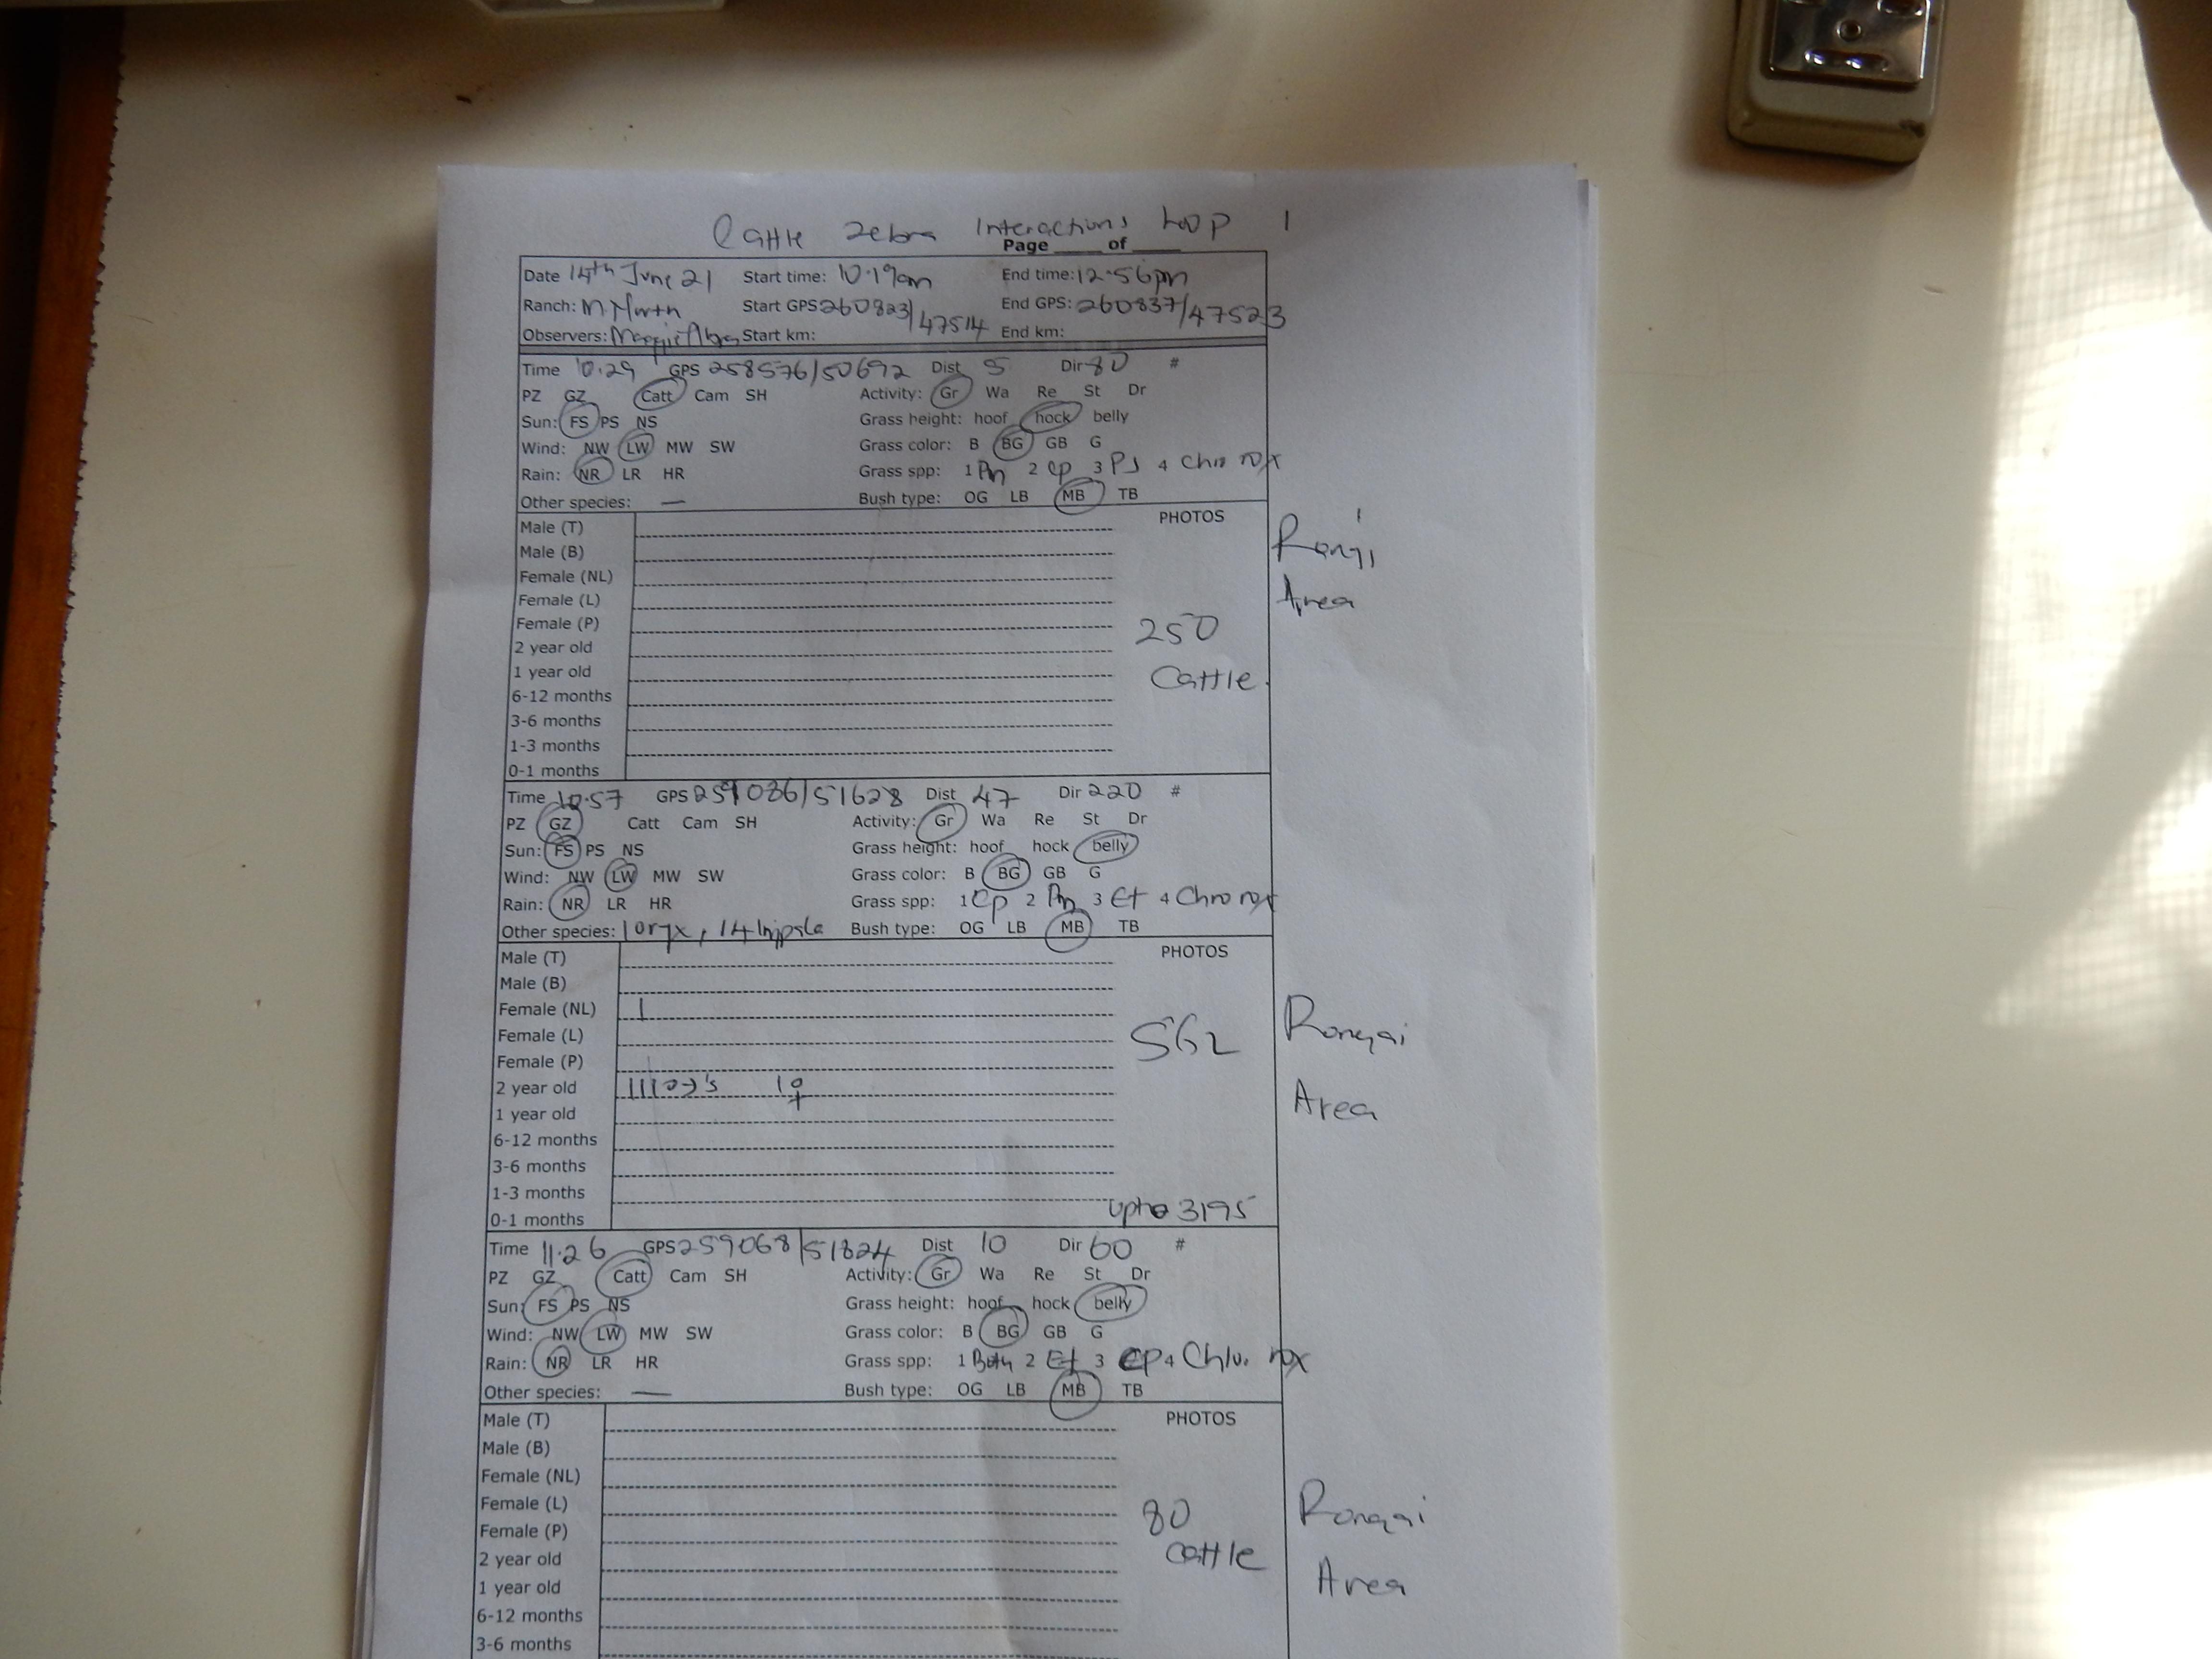 Cattle Zebra Interactions Loop 1
Page ____ of ____
Date 14th June 21 Start time: 10.19am End time: 12.56pm
Ranch: M. North Start GPS 260823/47514 End GPS: 260837/47523
Observers: Maggie Start km: End km:
Time 10.29 GPS 258576/50692 Dist 5 Dir 80 #
PZ GZ Catt Cam SH Activity: Gr Wa Re St Dr
Sun: FS PS NS Grass height: hoof hock belly
Wind: NW LW MW SW Grass color: B BG GB G
Rain: NR LR HR Grass spp: 1 Pm 2 Cp 3 PS 4 Chlo rox
Other species: — Bush type: OG LB MB TB
Male (T) PHOTOS
Male (B)
Female (NL)
Female (L)
Female (P)
2 year old
1 year old
6-12 months
3-6 months
1-3 months
0-1 months
250
Cattle.
Area
Time 10.57 GPS 259086/51628 Dist 47 Dir 220 #
PZ GZ Catt Cam SH Activity: Gr Wa Re St Dr
Sun: FS PS NS Grass height: hoof hock belly
Wind: NW LW MW SW Grass color: B BG GB G
Rain: NR LR HR Grass spp: 1 Cp 2 Pm 3 Et 4 Chlo rox
Other species: 1 oryx, 14 Impala Bush type: OG LB MB TB
Male (T) PHOTOS
Male (B)
Female (NL) 1
Female (L)
Female (P)
2 year old 111 ♂'s 1♀
1 year old
6-12 months
3-6 months
1-3 months
0-1 months
5GZ
Rongai
Area
upto 3195
Time 11.26 GPS 259068/51824 Dist 10 Dir 60 #
PZ GZ Catt Cam SH Activity: Gr Wa Re St Dr
Sun: FS PS NS Grass height: hoof hock belly
Wind: NW LW MW SW Grass color: B BG GB G
Rain: NR LR HR Grass spp: 1 Both 2 Et 3 Cp 4 Chlo. rox
Other species: — Bush type: OG LB MB TB
Male (T) PHOTOS
Male (B)
Female (NL)
Female (L)
Female (P)
2 year old
1 year old
6-12 months
3-6 months
80
Cattle
Rongai
Area